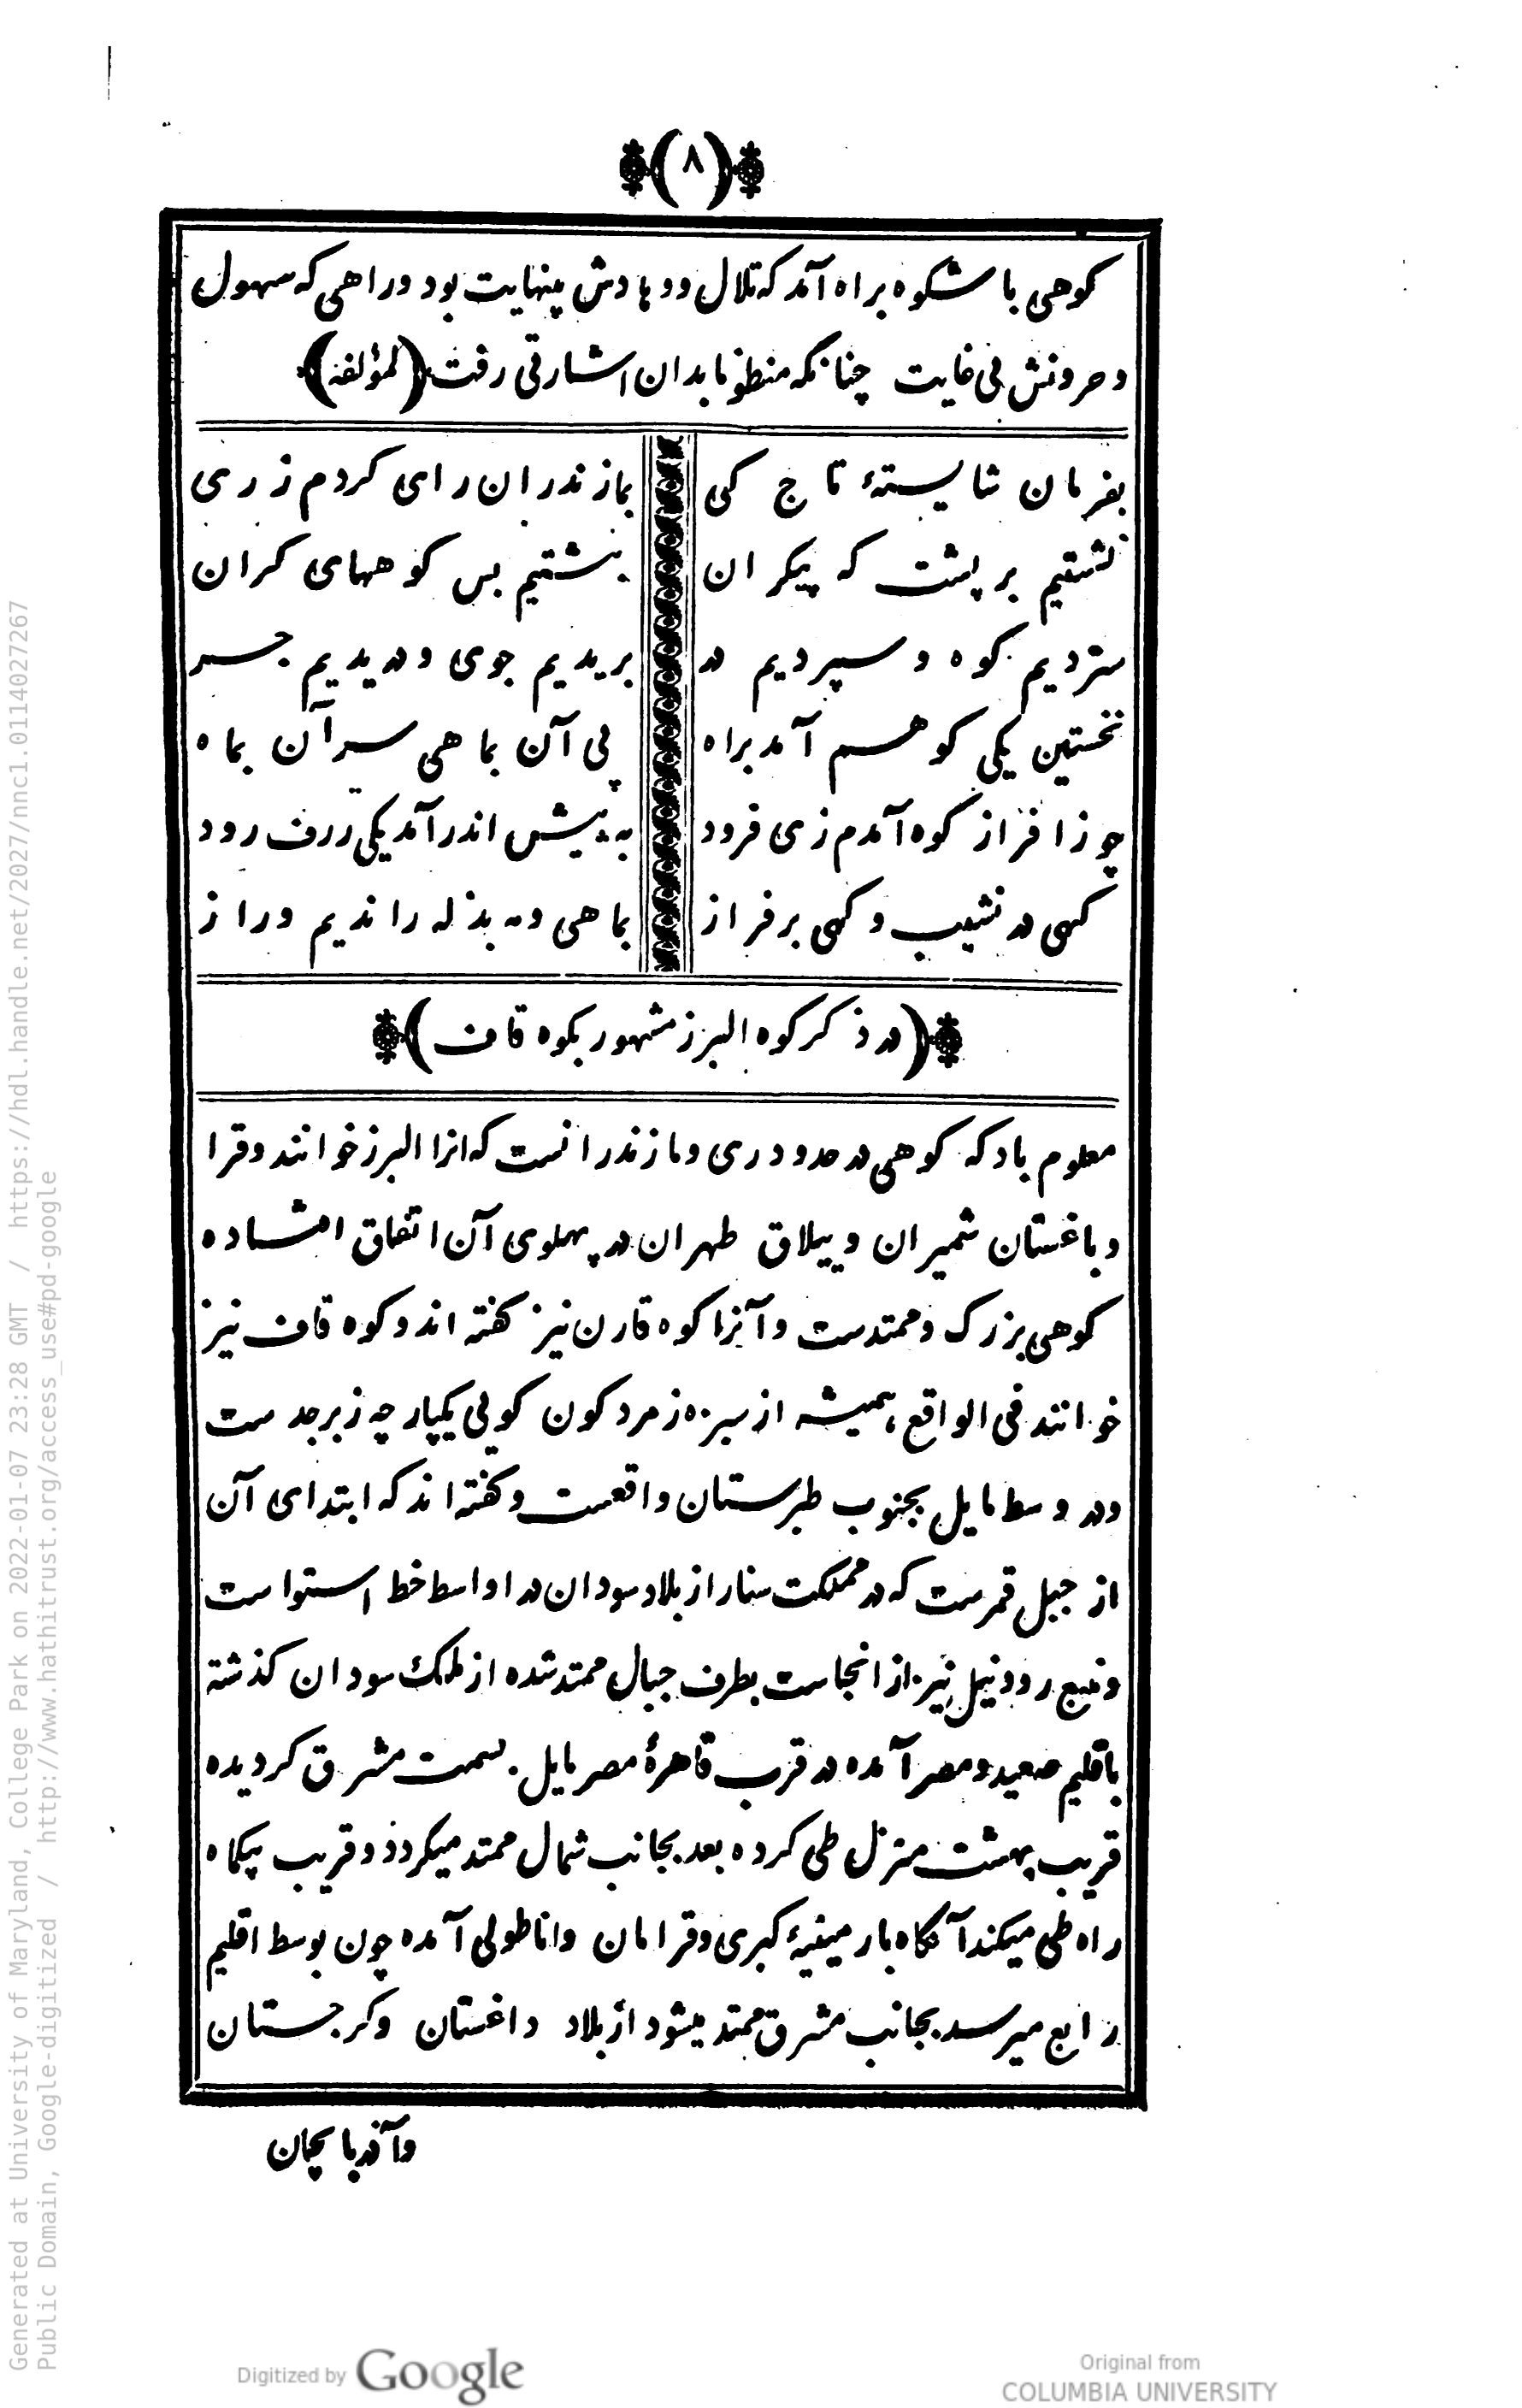 (۸)
کوهی با شکوه براه آمد که تلال و وهادش بینهایت بود و راهی که سهول
و حرونش بی غایت چنانکه منظوما بدان اشارتی رفت (لمؤلفه)
بفرمان شایستهٔ تاج کی بمازندران رای کردم ز ری
نشستیم بر پشت که پیکران بنشتیم بس کوههای کران
ستردیم کوه و سپردیم در بریدیم جوی و دریدیم جسر
نخستین یکی کوهم آمد براه پی آن بماهی سر آن بماه
چو زافراز کوه آمدم زی فرود به پیش اندر آمد یکی ژرف رود
کهی در نشیب و کهی بر فراز بماهی و مه بذله راندیم و راز
(در ذکر کوه البرز مشهور بکوه قاف)
معلوم باد که کوهی در حدود ری و مازندرانست که انرا البرز خوانند و قرا
و باغستان شمیران و ییلاق طهران در پهلوی آن اتفاق افتاده
کوهی بزرک و ممتدست و آنرا کوه قارن نیز کفته اند و کوه قاف نیز
خوانند فی الواقع همیشه از سبزه زمرد کون کویی یکپارچه زبرجد ست
و در وسط مایل بجنوب طبرستان واقعست و کفته اند که ابتدای آن
از جبل قمرست که در مملکت سنار از بلاد سودان در اواسط خط استوا ست
و منبع رود نیل نیز از انجاست بطرف جبال ممتد شده از ملک سودان کذشته
باقلیم صعید و مصر آمده در قرب قاهرهٔ مصر مایل بسمت مشرق کردیده
قریب بهشت منزل طی کرده بعد بجانب شمال ممتد میکردد و قریب یکماه
راه طی میکند آنکاه بارمینیهٔ کبری و قرامان و اناطولی آمده چون بوسط اقلیم
رابع میرسد بجانب مشرق ممتد میشود از بلاد داغستان و کرجستان
و آذربایجان
Generated at University of Maryland, College Park on 2022-01-07 23:28 GMT / https://hdl.handle.net/2027/nnc1.0114027267
Public Domain, Google-digitized / http://www.hathitrust.org/access_use#pd-google
Digitized by Google
Original from
COLUMBIA UNIVERSITY